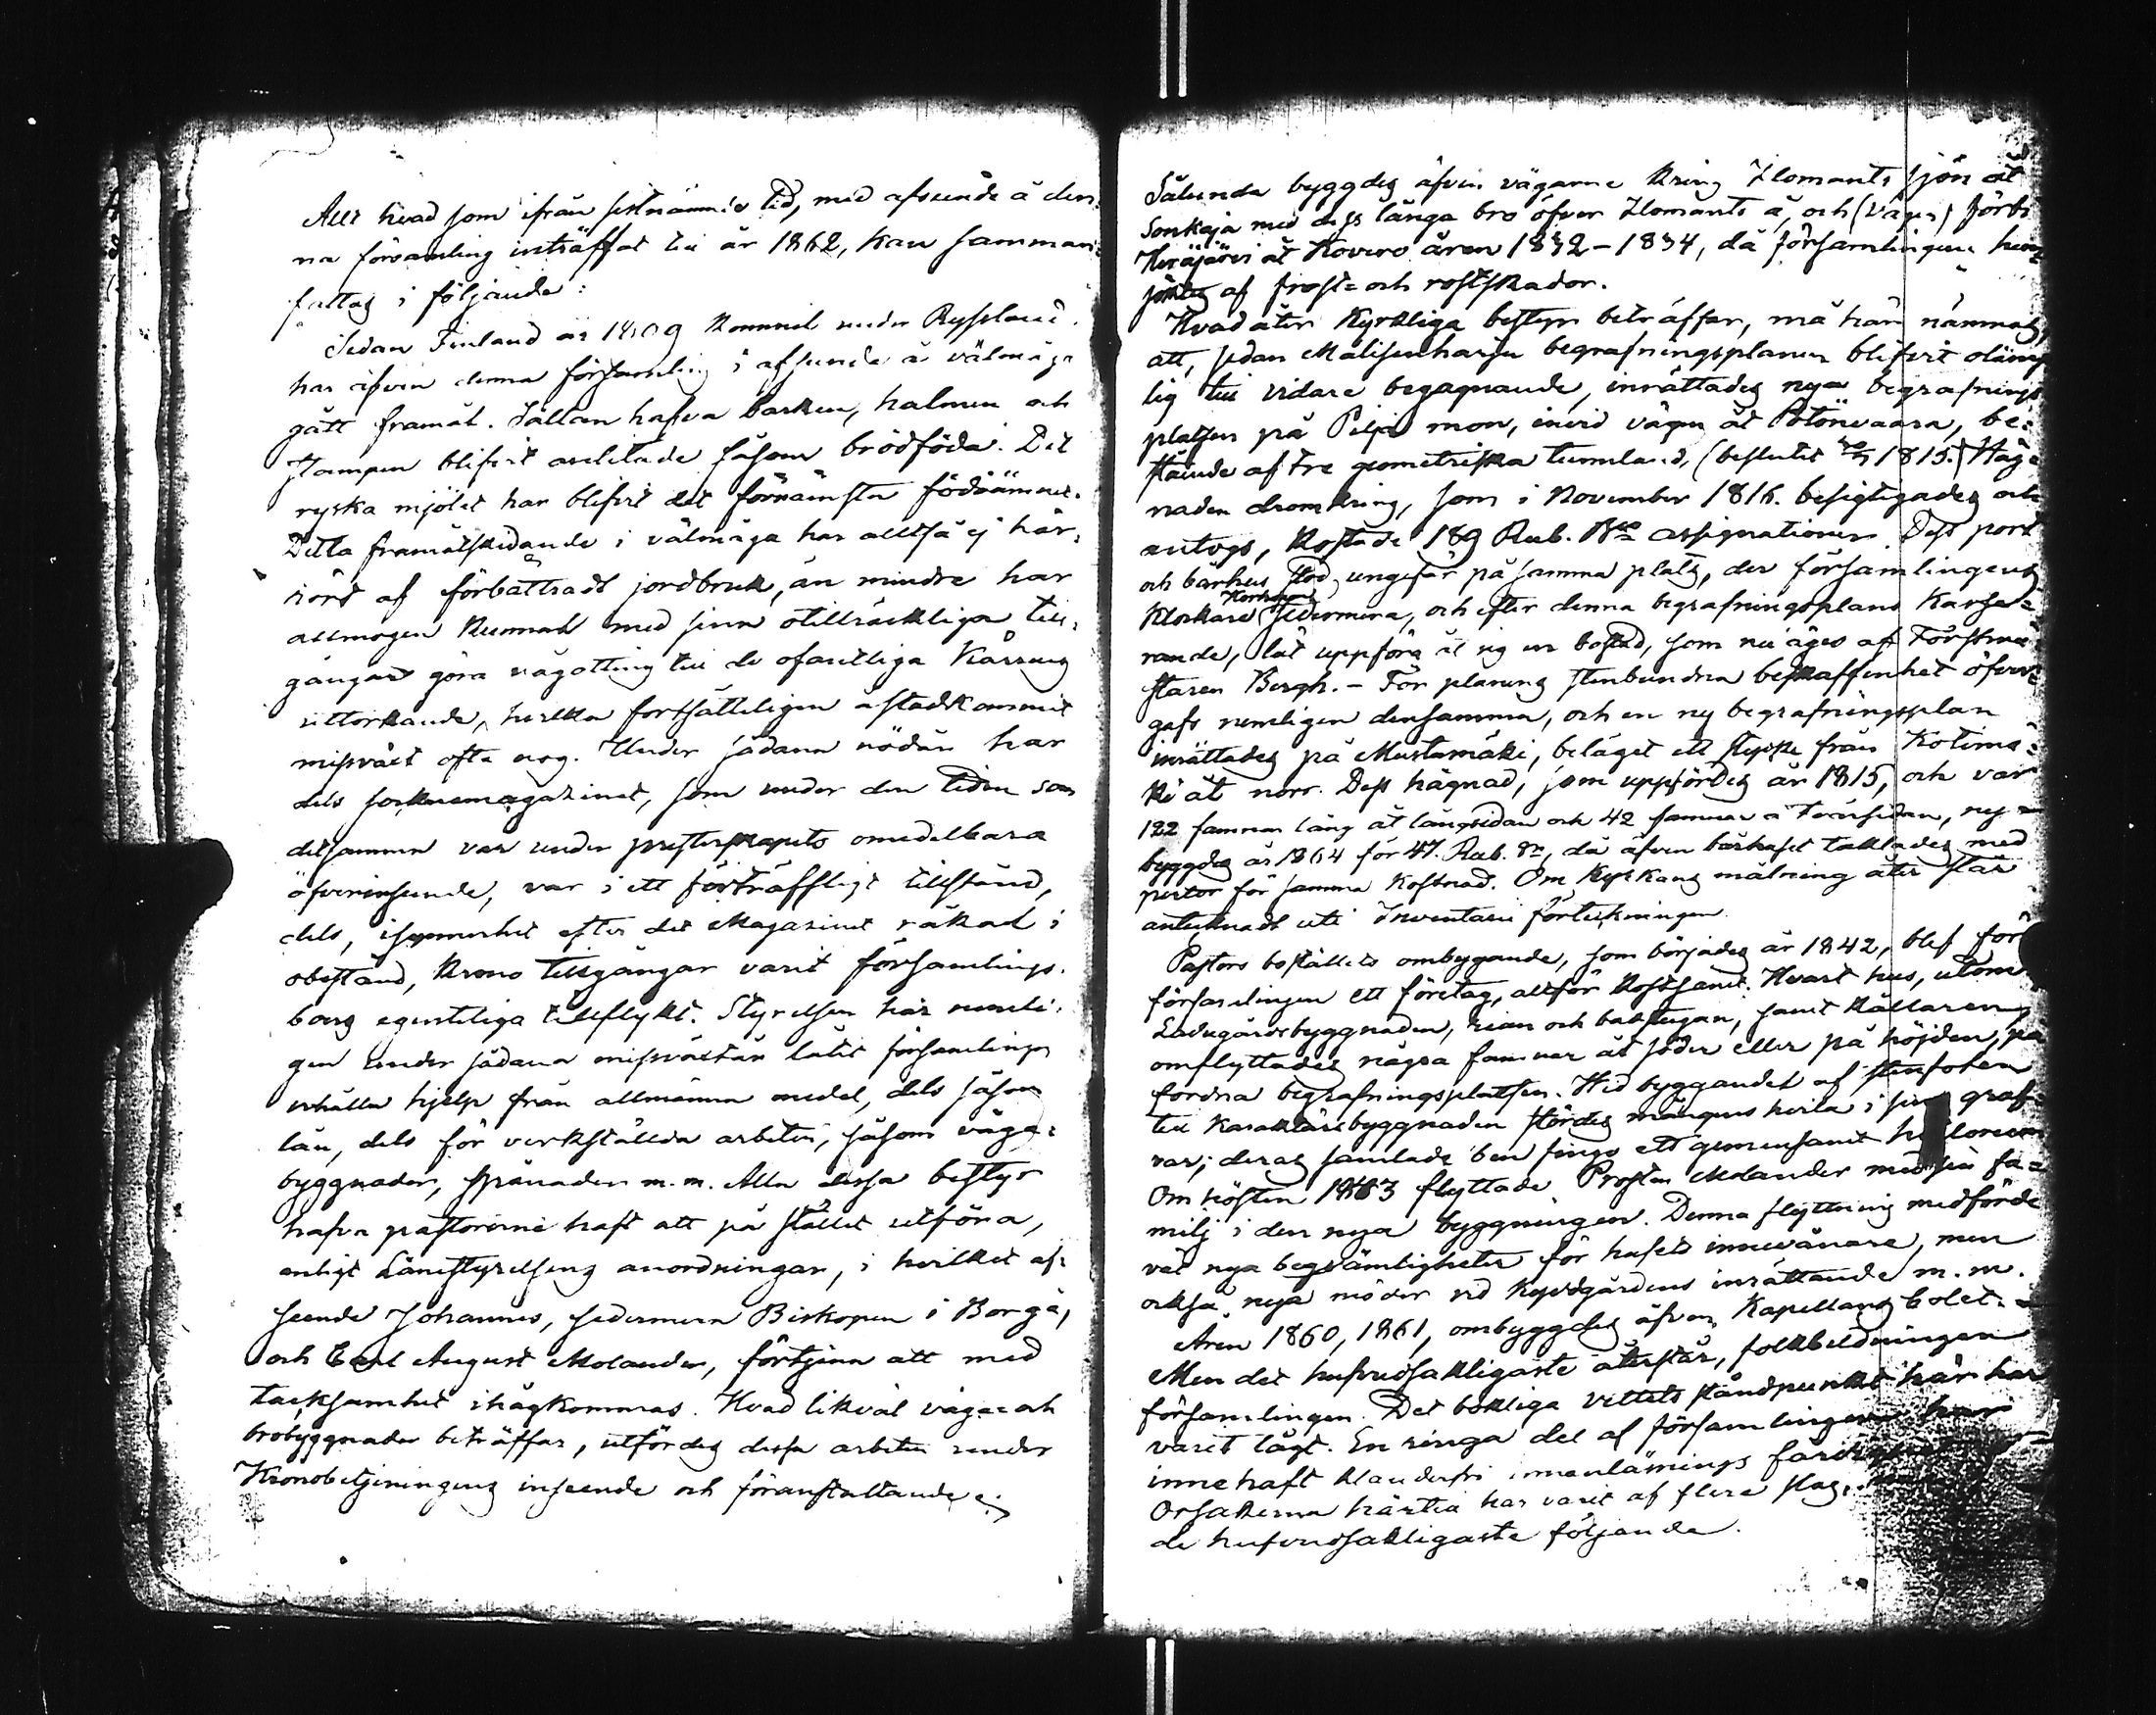 Allt hvad som ifrån sistnämnde tid, med afseende å den-
na församling inträffat till år 1862, kan samman-
fattas i följande:
Sedan Finland år 1809 kommit under Ryssland,
har äfven denna församling i afseende å välmåga
gått framåt. Sällan hafva barken, halmen och
stampen blifvit anlitade såsom brödföda. Det
ryska mjölet har blifvit det förnämsta födoämnet.
Detta framåtskridande i välmåga har alltså ej här-
rört af förbättradt jordbruk, än mindre har
allmogen kunnat med sina otillräckliga till-
gångar göra någotting till de ofantliga kärrens
uttorkande, hvilka fortsätteligen åstadkommit
missväxt ofta nog. Under sådana nödår har
dels socknemagazinet, som under den tiden som
detsamma var under presterskapets omedelbara
öfverinseende, var i ett förträffligt tillstånd,
dels, isynnerhet efter det Magazinet råkad i
obestånd, Krono tillgångar varit församlings-
boers egentliga tillflykt. Styrelsen har nemli-
gen under sådana missväxtår låtit församlingen
erhålla hjelp från allmänna medel, dels såsom
lån, dels för verkställda arbeten, såsom väga-
byggnader, spånader m.m. Alla dessa bestyr
hafva pastorerne haft att på stället utföra,
enligt Länestyrelsens anordningar, i hvilket af-
seende Johannes, sedermera Biskopen i Borgå,
och Carl August Molander, förtjena att med
tacksamhet ihågkommas. Hvad likväl väga- och
brobyggnader beträffar, utfördes dessa arbeten under
Kronobetjeningens inseende och föranstaltande.
Sålunda byggdes äfven vägarne kring Ilomants sjön åt
Sonkaja med dess långa bro öfver Ilomants å, och (vägen) förbi
Heräjärvi åt Kovero åren 1832-1834, då församlingen hem-
söktes af frost- och rostskador.
Hvad åter kyrkliga bestyr beträffar, må här nämnas,
att, sedan Malisenharju begrafningsplanen blifvit olämp-
lig till vidare begagnande, inrättades nya begrafnings-
platsen på Pilja mon, invid vägen åt Pötönvaara, be-
stående af tre geometriska tunnland, (beslutet 1815.) Häg-
naden deromkring, som i November 1816. besigtigades och
antogs, kostade 189 Rub. B:co assignationer. Dess port
och bårhus stod ungefär på samma plats, der församlingens
Klockare sedermera, och efter denna begrafningsplans
rande, lät uppföra åt sig en bostad, som nu äges af Forstmä-
staren Bergh. - För planens stenbundna beskaffenhet öfver-
gafs nemligen densamma, och en ny begrafningsplan
inrättades på Mustamäki, beläget ett stycke från Kotimä-
ki åt norr. Dess hägnad, som uppfördes år 1815, och var
122 famnar lång åt långsidan och 42 famnar å tvärsidan, ny-
byggdes år 1864 för 47. Rub. S:r, då äfven bårhuset täcktades med
pertor för samma kostnad. Om kyrkans målning åter står
antecknadt uti Inventarii förteckningen.
Pastors boställets ombygande, som börjades år 1842, blef för
församlingen ett företag, alltför kostsamt. Hvart hus, utom
Ladugårdsbyggnaden, rian och badstugan, samt källaren
omflyttades några famnar åt söder eller på höjden, på
fordna begrafningsplatsen. Vid byggandet af stenfoten
till Karaktärsbyggnaden stördes mångens hvila i sina graf-
var; deras samlade ben fingo ett gemensamt
Om hösten 1843 flyttade Prosten Molander med sin fa-
milj i den nya byggningen. Denna flyttning medförde
väl nya beqvämligheter för husets innevånare, men
också nya mödor vid kyrkgårdens inrättande m.m.
Åren 1860, 1861, ombyggdes äfven Kapellans bolet.
Men det hufvudsakligaste återstår, folkbildningen
församlingen. Det bokliga vettets ståndpunkt här har
varit lågt. En ringa del af församlingen har
innehaft klanderfri innanläsnings
Orsakerna härtill har varit af flera slag,
de hufvudsakligaste följande.